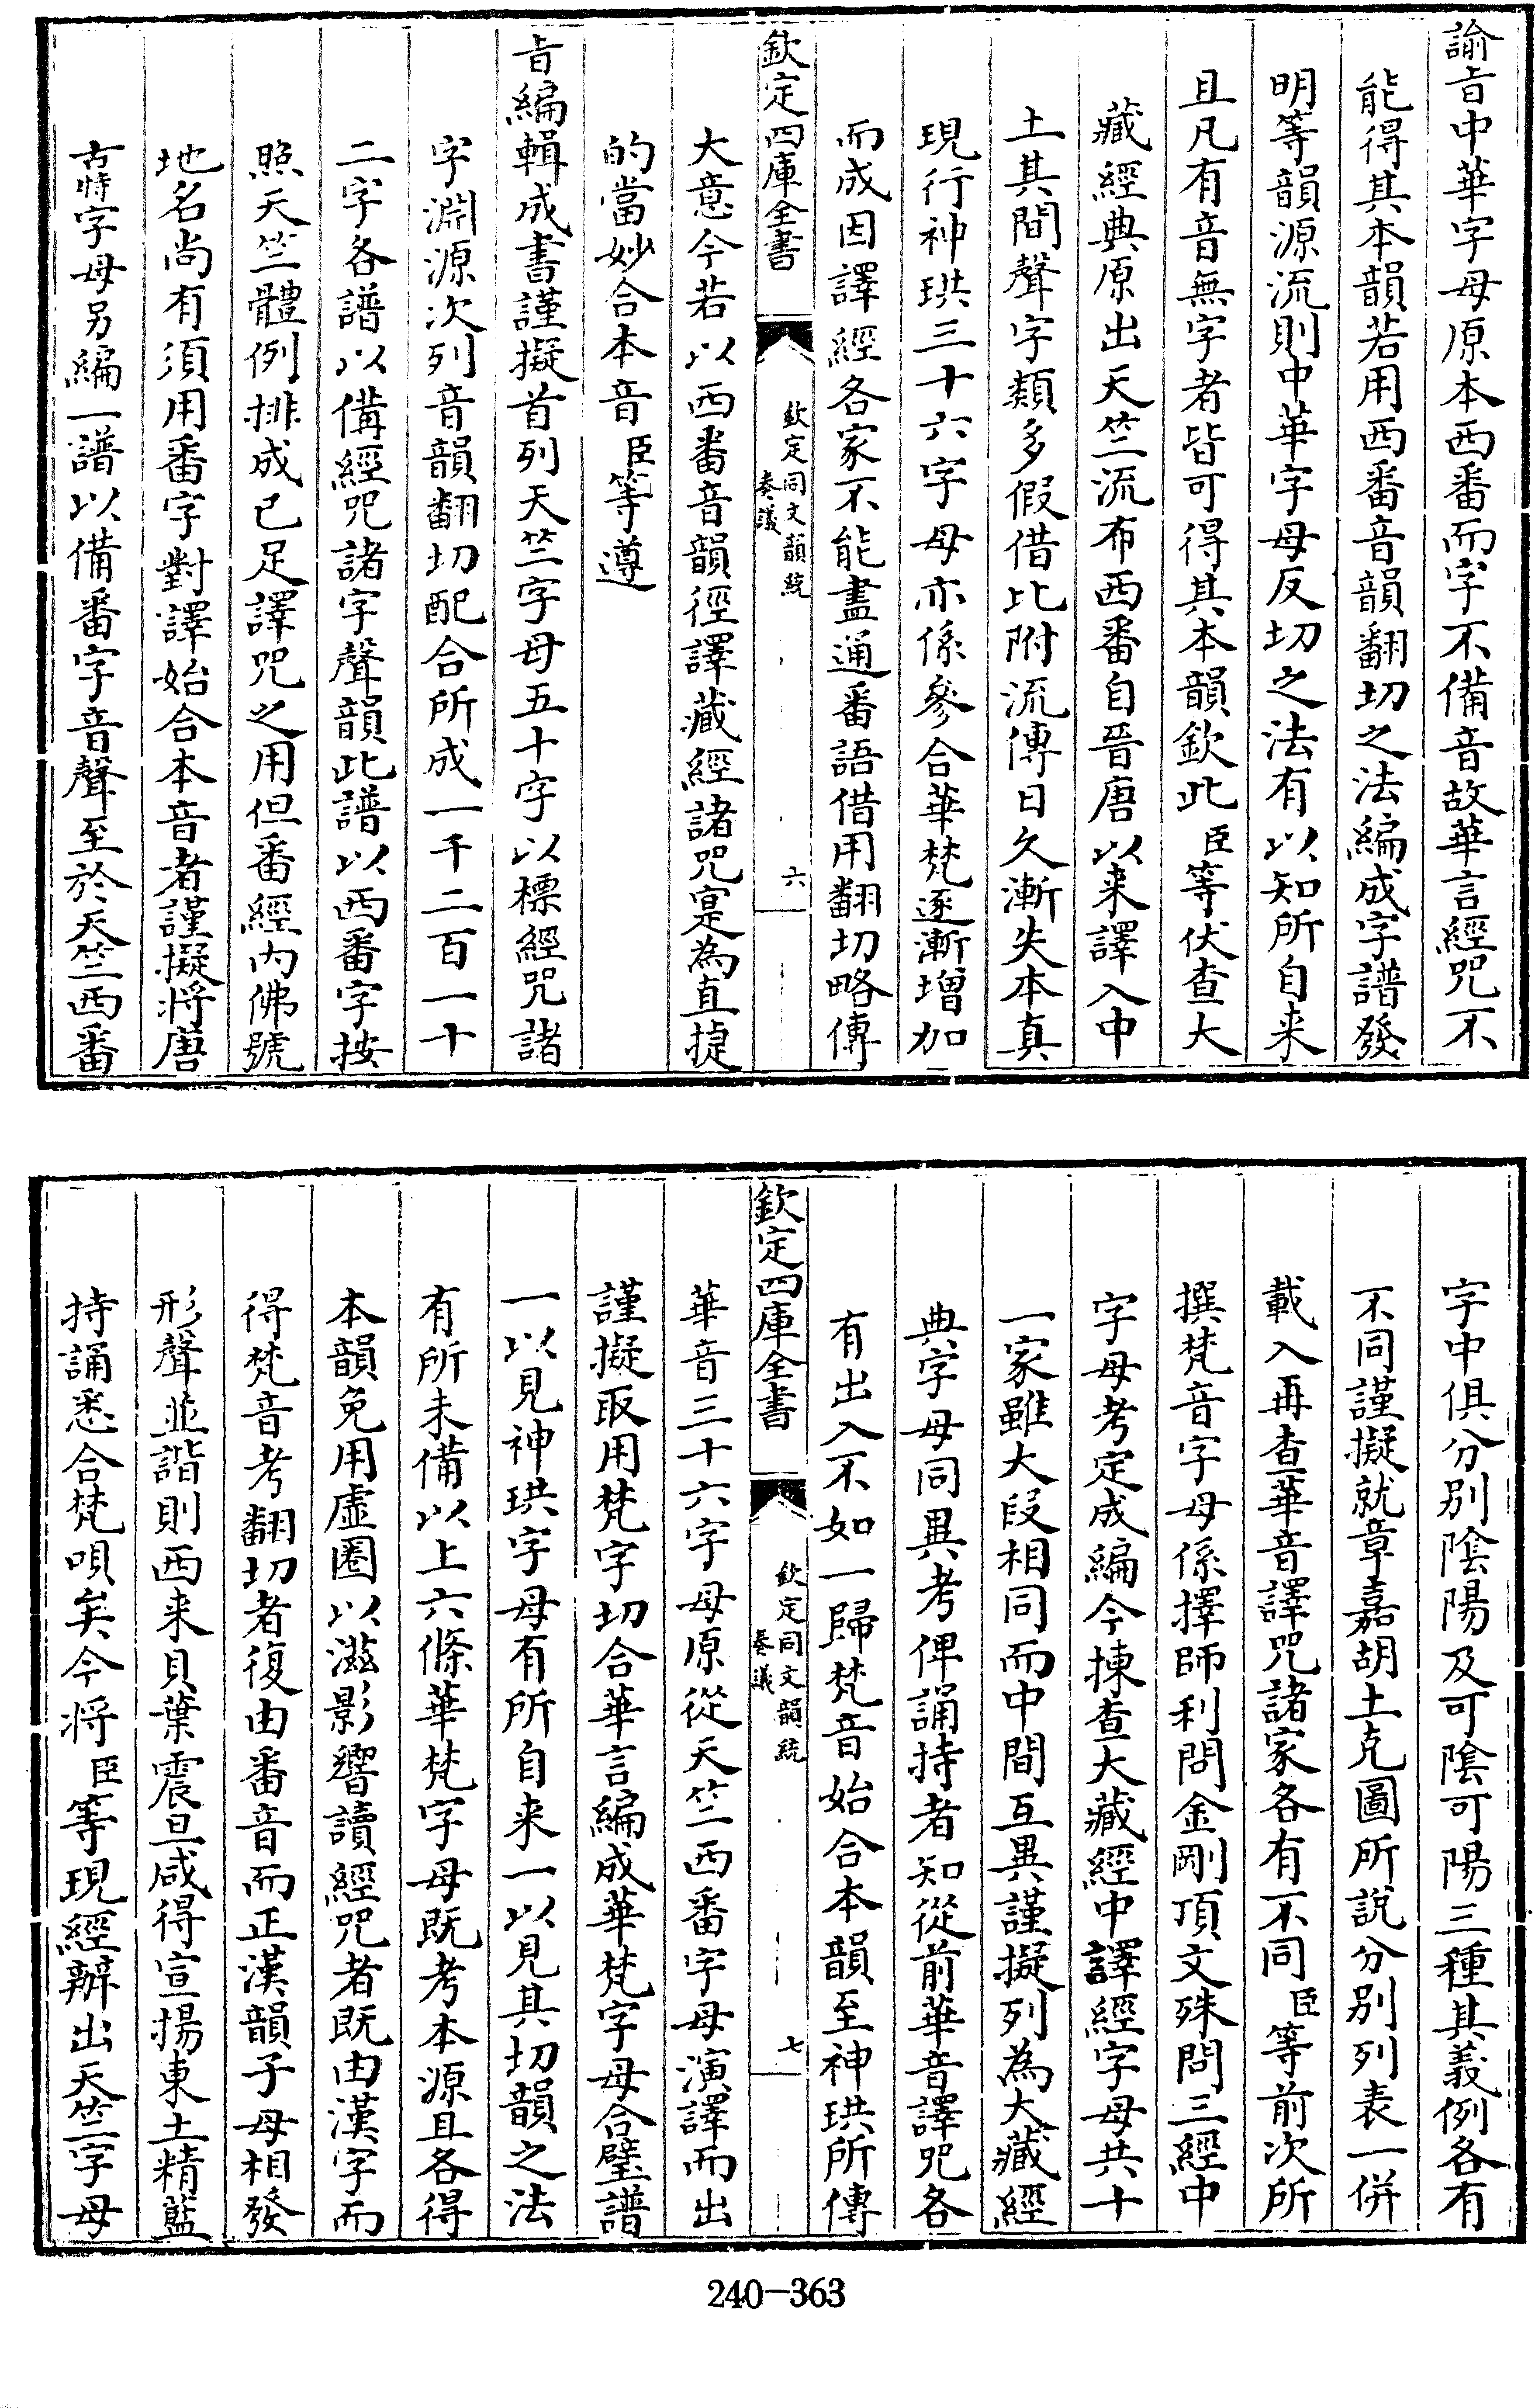 諭㫖中華字母原本西番而字不備音故華言經咒不
能得其本韻若用西番音韻翻切之法編成字譜發
明等韻源流則中華字母反切之法有以知所自来
且凡有音無字者皆可得其本韻欽此臣等伏查大
藏經典原出天竺流布西番自晉唐以来譯入中
土其間聲字類多假借比附流傳日久漸失本真
現行神珙三十六字母亦係參合華梵逐漸增加
而成因譯經各家不能盡通番語借用翻切略傳
欽定四庫全書
欽定同文韻統
奏議
六
大意今若以西番音韻徑譯藏經諸咒寔為直捷
的當妙合本音臣等遵
㫖編輯成書謹擬首列天竺字母五十字以標經咒諸
字淵源次列音韻翻切配合所成一千二百一十
二字各譜以備經咒諸字聲韻此譜以西番字按
照天竺體例排成已足譯咒之用但番經内佛號
地名尚有須用番字對譯始合本音者謹擬將唐
古特字母另編一譜以備番字音聲至於天竺西番
字中俱分别陰陽及可陰可陽三種其義例各有
不同謹擬就章嘉胡土克圖所説分别列表一併
載入再查華音譯咒諸家各有不同臣等前次所
撰梵音字母係擇師利問金剛頂文殊問三經中
字母考定成編今揀查大藏經中譯經字母共十
一家雖大段相同而中間互異謹擬列為大藏經
典字母同異考俾誦持者知從前華音譯咒各
有出入不如一歸梵音始合本韻至神珙所傳
欽定四庫全書
欽定同文韻統
奏議
七
華音三十六字母原從天竺西番字母演譯而出
謹擬取用梵字切合華言編成華梵字母合璧譜
一以見神珙字母有所自来一以見其切韻之法
有所未備以上六條華梵字母既考本源且各得
本韻免用虚圈以滋影響讀經咒者既由漢字而
得梵音考翻切者復由番音而正漢韻子母相發
形聲並諧則西来貝葉震旦咸得宣揚東土精藍
持誦悉合梵唄矣今將臣等現經辦出天竺字母
240-363